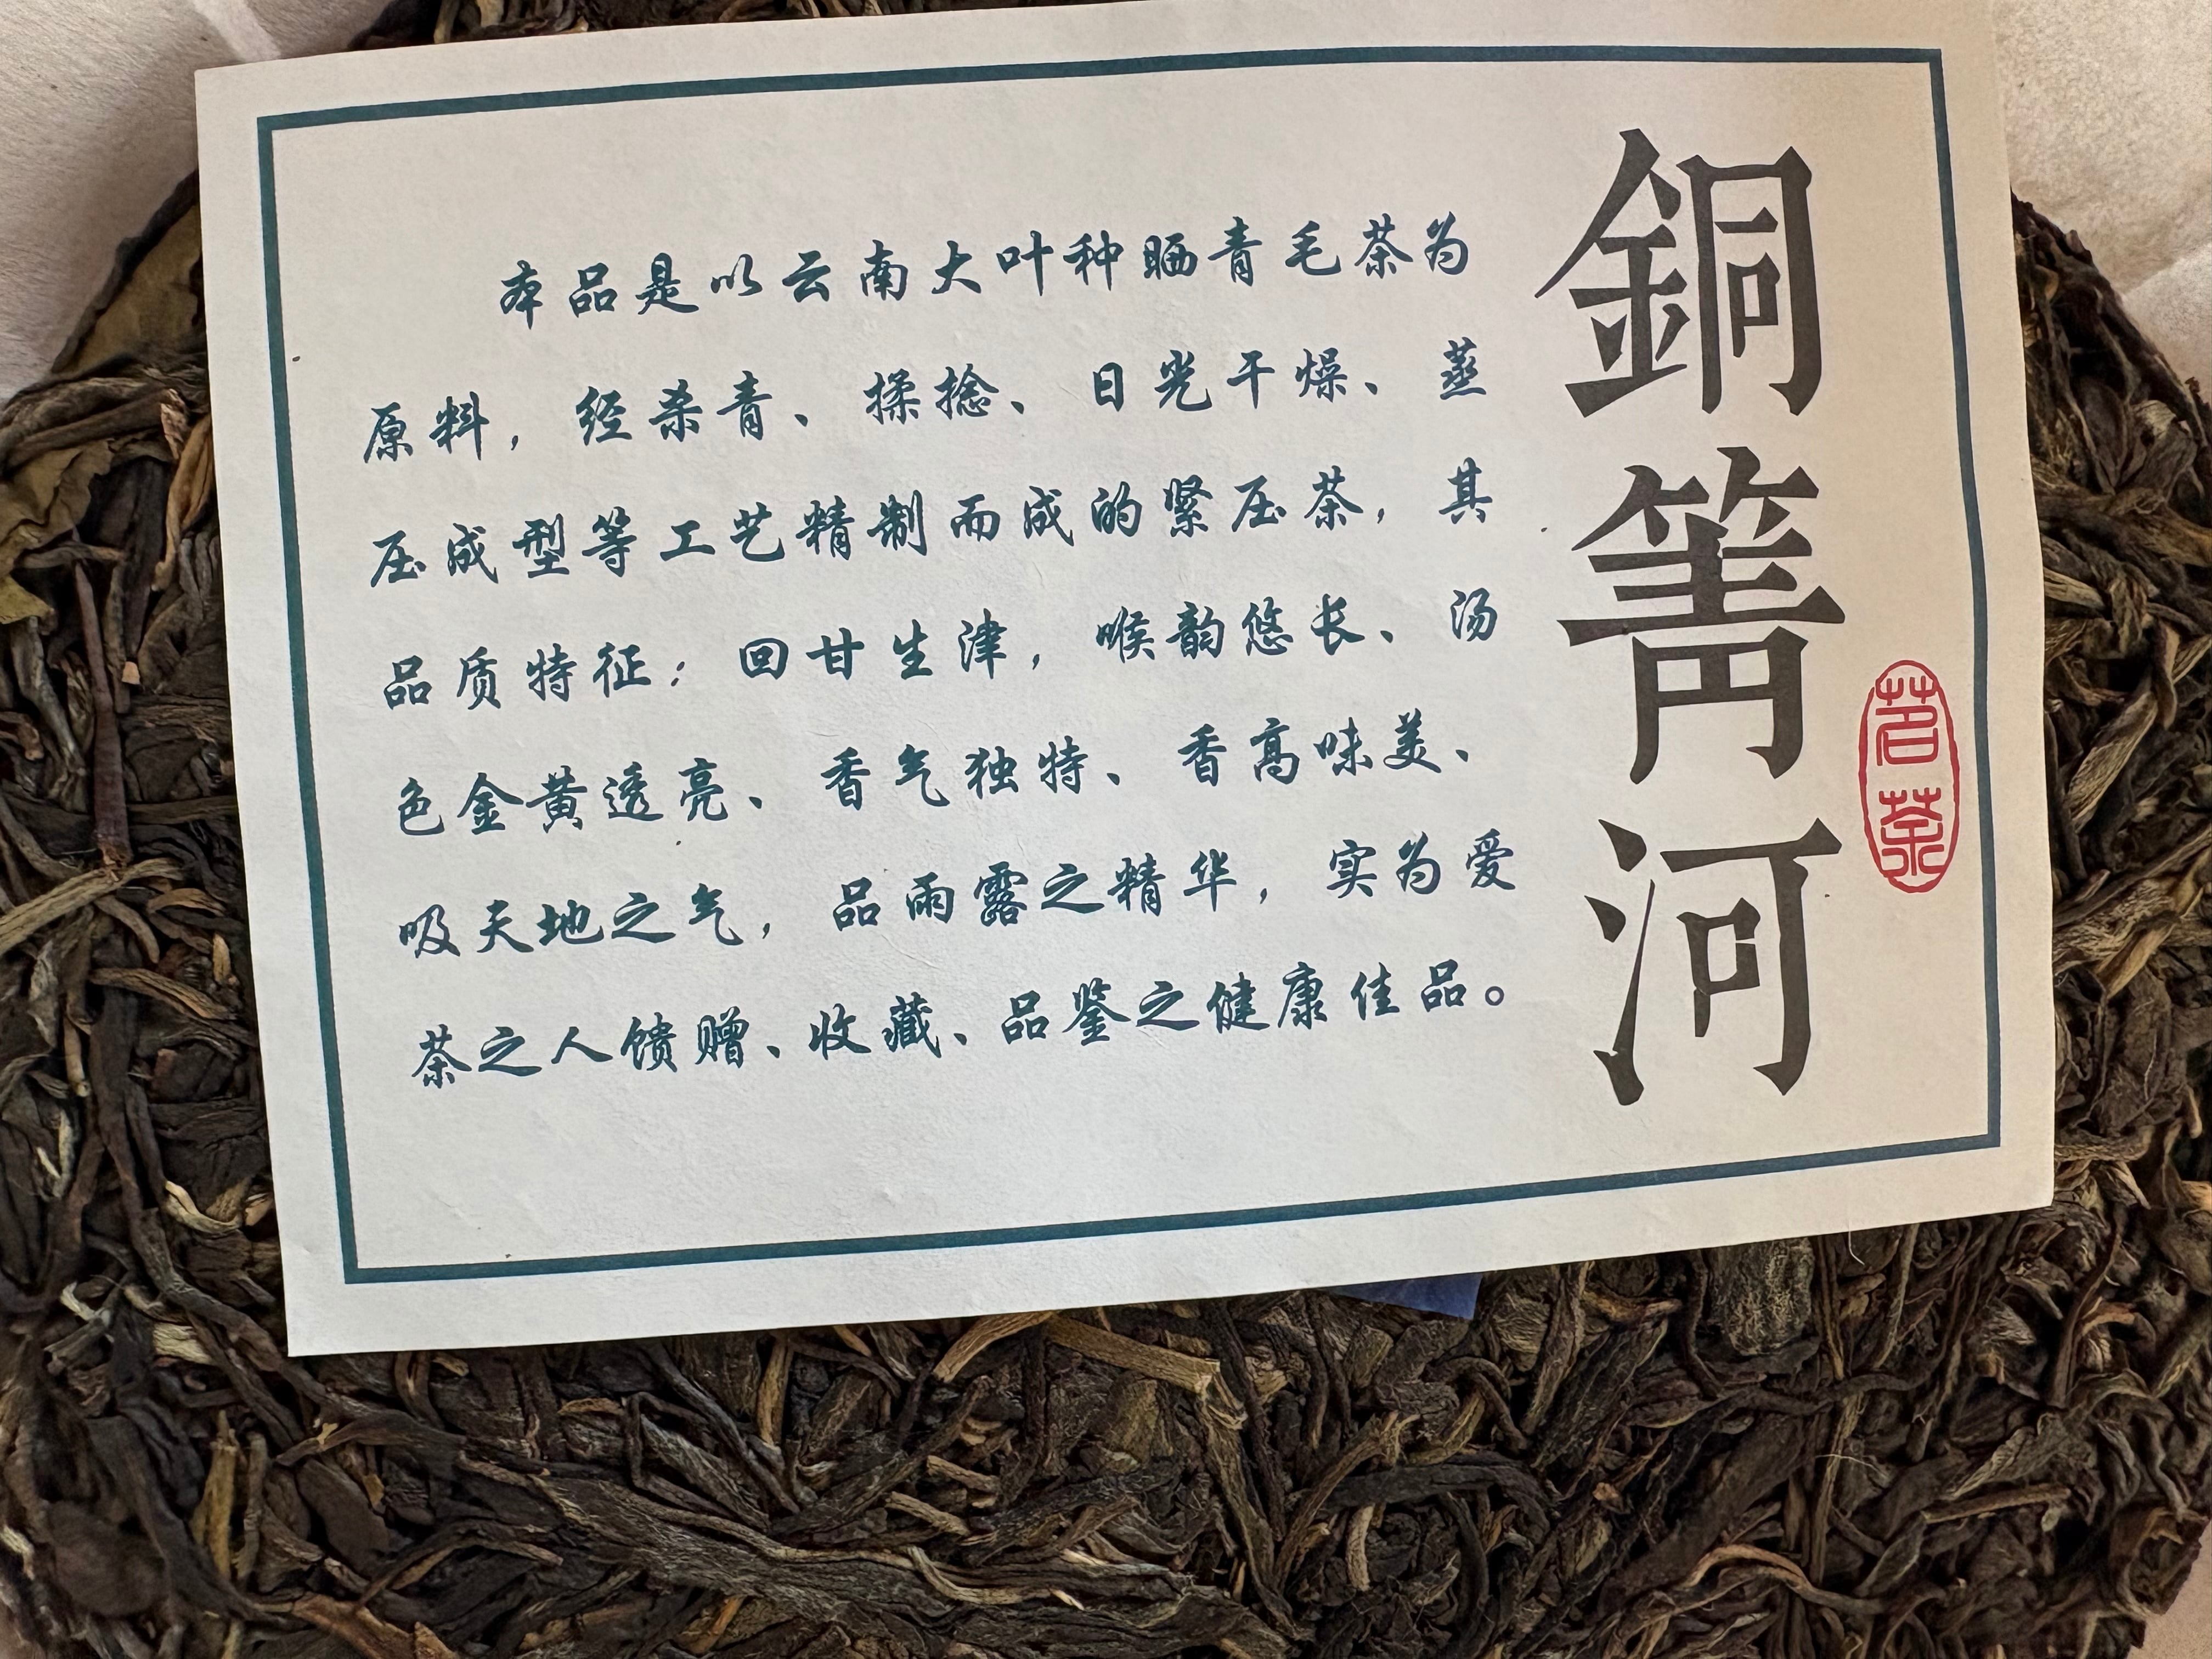 銅箐河
茗茶
本品是以云南大叶种晒青毛茶为
原料，经杀青、揉捻、日光干燥、蒸
压成型等工艺精制而成的紧压茶，其
品质特征：回甘生津，喉韵悠长、汤
色金黄透亮、香气独特、香高味美、
吸天地之气，品雨露之精华，实为爱
茶之人馈赠、收藏、品鉴之健康佳品。